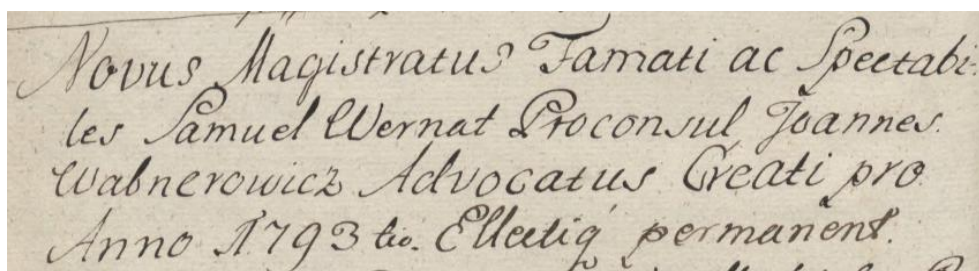 Novus Magistratus Famati ac Spectabi-
les Samuel Wernat Proconsul Joannes
Wabnerowicz Advocatus Creati pro
Anno 1793 tio. Ellectiq permanent.